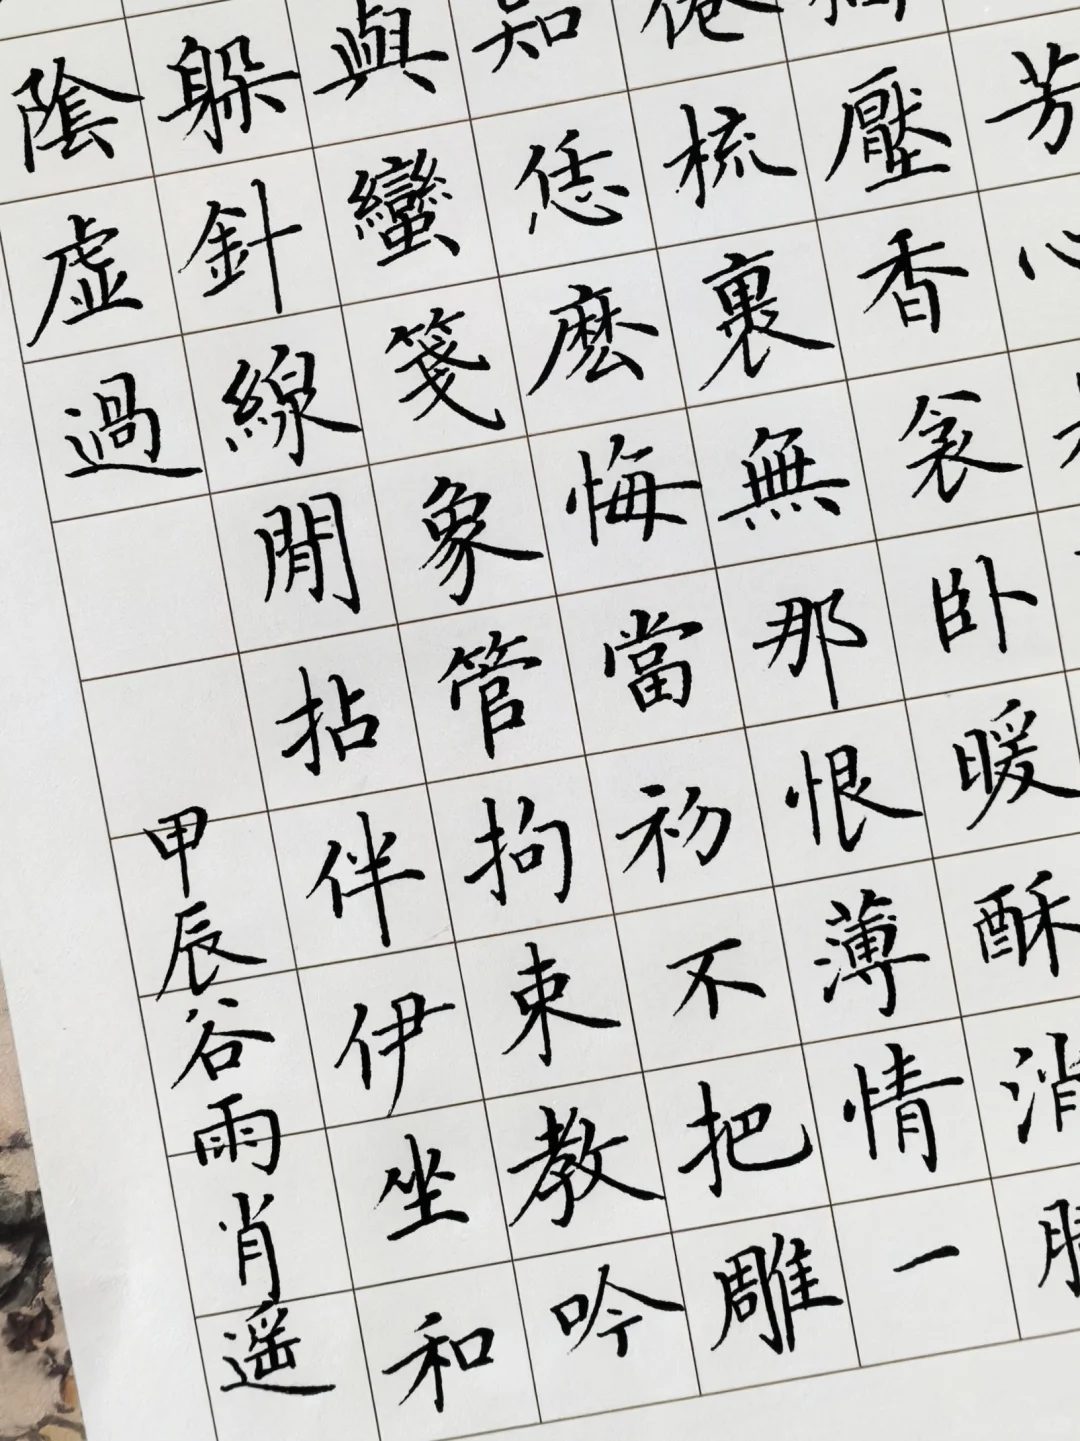 芳心
壓香衾卧暖酥消
倦梳裹無那恨薄情一
知恁麼悔當初不把雕
與蠻箋象管拘束教吟
躲針線閒拈伴伊坐和
陰虛過
甲辰谷雨肖遥